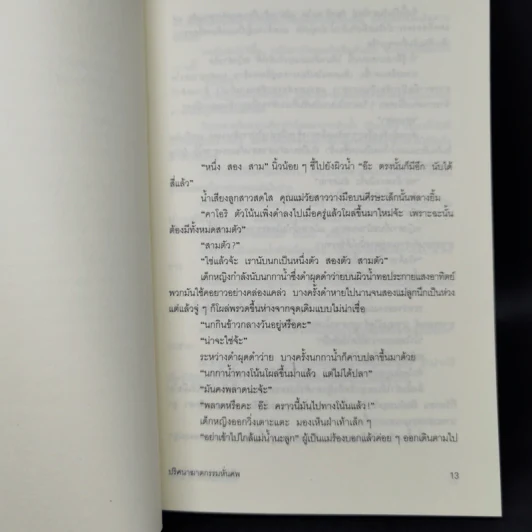 "หนึ่ง สอง สาม" นิ้วน้อย ๆ ชี้ไปยังผิวน้ำ "อ๊ะ ตรงนั้นก็มีอีก นับได้
สี่แล้ว"
น้ำเสียงลูกสาวสดใส คุณแม่วัยสาววางมือบนศีรษะเล็กนั้นพลางยิ้ม
"คาโอริ ตัวโน้นเพิ่งดำลงไปเมื่อครู่แล้วโผล่ขึ้นมาใหม่จ้ะ เพราะฉะนั้น
ต้องมีทั้งหมดสามตัว"
"สามตัว?"
"ใช่แล้วจ้ะ เรานับนกเป็นหนึ่งตัว สองตัว สามตัว"
เด็กหญิงกำลังนับนกกาน้ำซึ่งดำผุดดำว่ายบนผิวน้ำทอประกายแสงอาทิตย์
พวกมันใช้คอยาวอย่างคล่องแคล่ว บางครั้งดำหายไปนานจนสองแม่ลูกนึกเป็นห่วง
แต่แล้วจู่ ๆ ก็โผล่พรวดขึ้นห่างจากจุดเดิมแบบไม่น่าเชื่อ
"นกกินข้าวกลางวันอยู่หรือคะ"
"น่าจะใช่จ้ะ"
ระหว่างดำผุดดำว่าย บางครั้งนกกาน้ำก็คาบปลาขึ้นมาด้วย
"นกกาน้ำทางโน้นโผล่ขึ้นมาแล้ว แต่ไม่ได้ปลา"
"มันคงพลาดน่ะจ้ะ"
"พลาดหรือคะ อ๊ะ คราวนี้มันไปทางโน้นแล้ว!"
เด็กหญิงออกวิ่งเตาะแตะ มองเห็นฝ่าเท้าเล็ก ๆ
"อย่าเข้าไปใกล้แม่น้ำนะลูก" ผู้เป็นแม่ร้องบอกแล้วค่อย ๆ ออกเดินตามไป
ปริศนาฆาตกรรมหั่นศพ
13